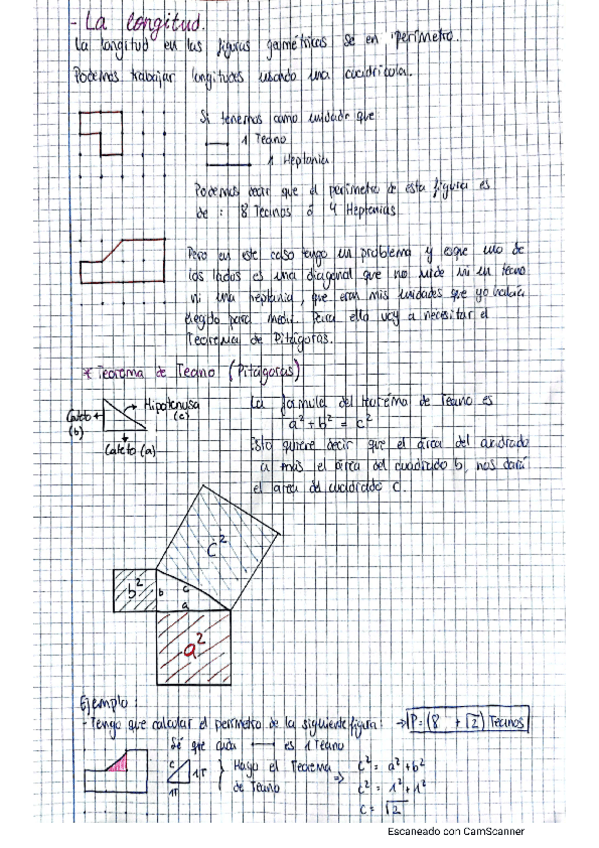 - La longitud.
La longitud en las figuras geométricas se en perímetro.
Podemos trabajar longitudes usando una cuadrícula.
Si tenemos como unidade que:
1 Teano
1 Heptania
Podemos decir que el perímetro de esta figura es
de : 8 Teanos ó 4 Heptanias
Pero en este caso tengo un problema y es que uno de
los lados es una diagonal que no mide ni un teano
ni una heptania, que eran mis unidades que yo había
elegido para medir. Para ello voy a necesitar el
Teorema de Pitágoras.
* Teorema de Teano (Pitágoras)
Cateto (b)
Hipotenusa (c)
Cateto (a)
La formula del teorema de Teano es
a² + b² = c²
Esto quiere decir que el área del cuadrado
a más el área del cuadrado b, nos dará
el area del cuadrado c.
c²
b²
b
c
a
a²
Ejemplo:
- Tengo que calcular el perímetro de la siguiente figura: → P = (8 + √2) Teanos
Sé que cada es 1 Teano
c
1T
1T
Hago el Teorema
de Teano
⇒
c² = a² + b²
c² = 1² + 1²
c = √2
Escaneado con CamScanner